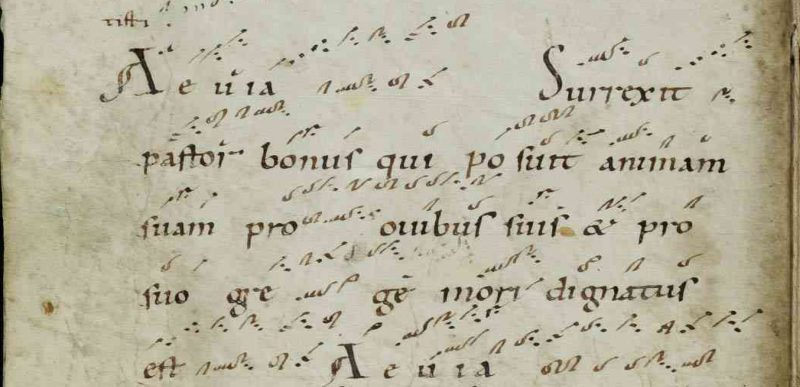 Aeuia Surrexit
pastor bonus qui posuit animam
suam pro ouibus suis & pro
suo gre ge mori dignatus
est Aeuia